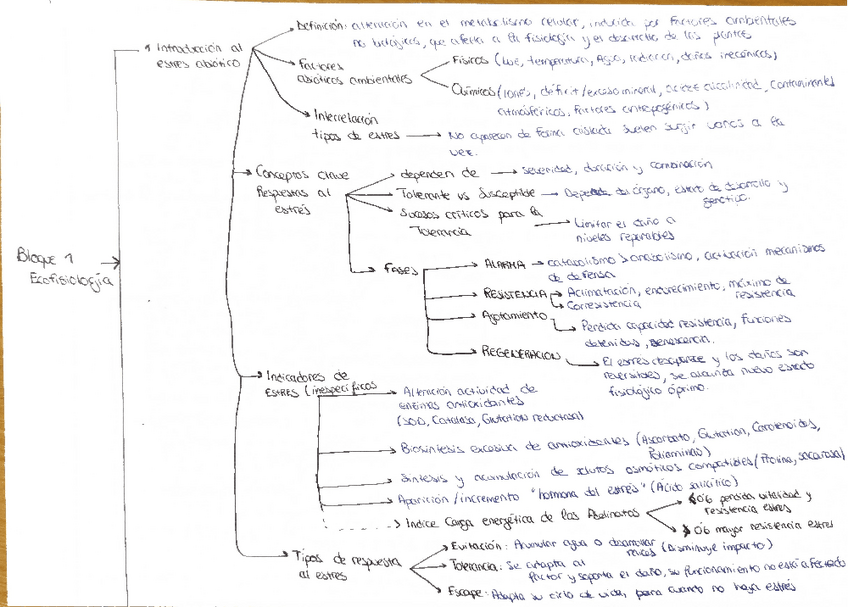 Bloque 1
Ecofisiología
1 Introducción al
estres abiótico
Definición: alteración en el metabolismo celular, inducida por factores ambientales
no biológicos, que afecta a la fisiología y el desarrollo de las plantas
Factores
abióticos ambientales
Físicos (luz, temperatura, Agua, radiación, daños mecánicos)
Químicos (iones, déficit/exceso mineral, alcalinidad, contaminantes
atmosféricos, factores antropogénicos)
Interrelación
tipos de estres
No aparecen de forma aislada suelen surgir varios a la
vez.
Conceptos clave
Respuestas al
estrés
dependen de
severidad, duración y combinación
Tolerante vs Susceptible
Depende del órgano, estado de desarrollo y
genético.
Sucesos críticos para la
Tolerancia
Limitar el daño a
niveles reparables
Fases
ALARMA
catabolismo > anabolismo, activación mecanismos
de defensa
RESISTENCIA
Aclimatación, endurecimiento, máximo de
resistencia
Agotamiento
Pérdida capacidad resistencia, funciones
detenidas, senescencia.
REGENERACIÓN
El estres desaparece y los daños son
reversibles, se alcanza nuevo estado
fisiológico óptimo.
Indicadores de
ESTRES (inespecíficos
Alteración actividad de
enzimas antioxidantes
(SOD, Catalasa, Glutation reductasa)
Biosíntesis excesiva de antioxidantes (Ascorbato, Glutation, Carotenoides,
Poliaminas)
Síntesis y acumulación de solutos osmóticos compatibles (Prolina, sacarosa)
Aparición/incremento "hormona del estrés" (Ácido salicílico)
Indice Carga energética de los Adelinatos
0'6 perdida vitalidad y
resistencia estres
0'6 mayor resistencia estres
Tipos de respuesta
al estres
Evitación: Acumular agua o desarrollar
raíces (Disminuye impacto)
Tolerancia: Se adapta al
factor y soporta el daño, su funcionamiento no está afectado
Escape: Adapta su ciclo de vida, para cuando no haya estrés